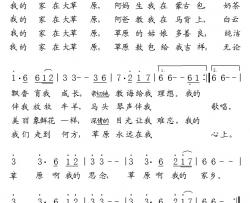 我的 家在大草 原，阿妈生 我在 蒙古 包。奶茶
我的 家在大草 原，阿爸教 我在 马背 上。白云
我的 家在大草 原，草原的 姑娘 多善 良，纯洁
我的 家在大草 原，草原敖 包给 我吉 祥，无论
1. 2.
1· 6 6 1 2 | 3 3 - 3 5 | 6 · 3 2 1 7 | 6 6 - - | 6 6 - -
飘香育我 成长，亲切地 教诲给 我理想。我的
伴我放放 牛羊，马头 琴声伴 我 歌唱。
美丽象鲜花 一样，深情的 目光让 我难忘。我的
我们走到 何方，草原 永远在我 心上。
草 原 啊我的思念，草 原 啊 我 的 家 乡。